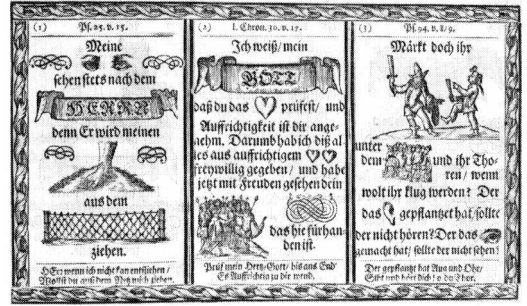 (1) Ps. 25. v. 15.
Meine
sehen stets nach dem
HERRN
denn Er wird meinen
aus dem
ziehen.
HErr wenn ich nicht kan entfliehen /
(2) I. Chron. 30. v. 17.
Ich weiß / mein
GOTT
daß du das prüfest / und
Auffrichtigkeit ist dir ange-
nehm. Darumb hab ich diß al
les aus auffrichtigem
freywillig gegeben / und habe
jetzt mit Freuden gesehen dein
das hie fürhan-
den ist.
Prüf mein Hertz / Gott / bis ans End /
Es Auffrichtig zu dir wend.
(3) Ps. 94. v. 8 / 9.
Märkt doch ihr
unter
dem und ihr Tho-
ren / wenn
wolt ihr klug werden? Der
das gepflantzet hat / solte
der nicht hören? Der das
gemacht hat / solte der nicht sehen?
Der gepflantzt hat Aug und Ohr /